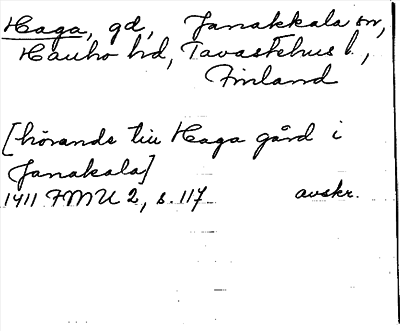 Haga, gd, Janakkala sn,
Hauho hd, Tavastehus l.,
Finland
[hörande till Haga gård i
Janakala]
1411 FMU 2, s. 117. avskr.